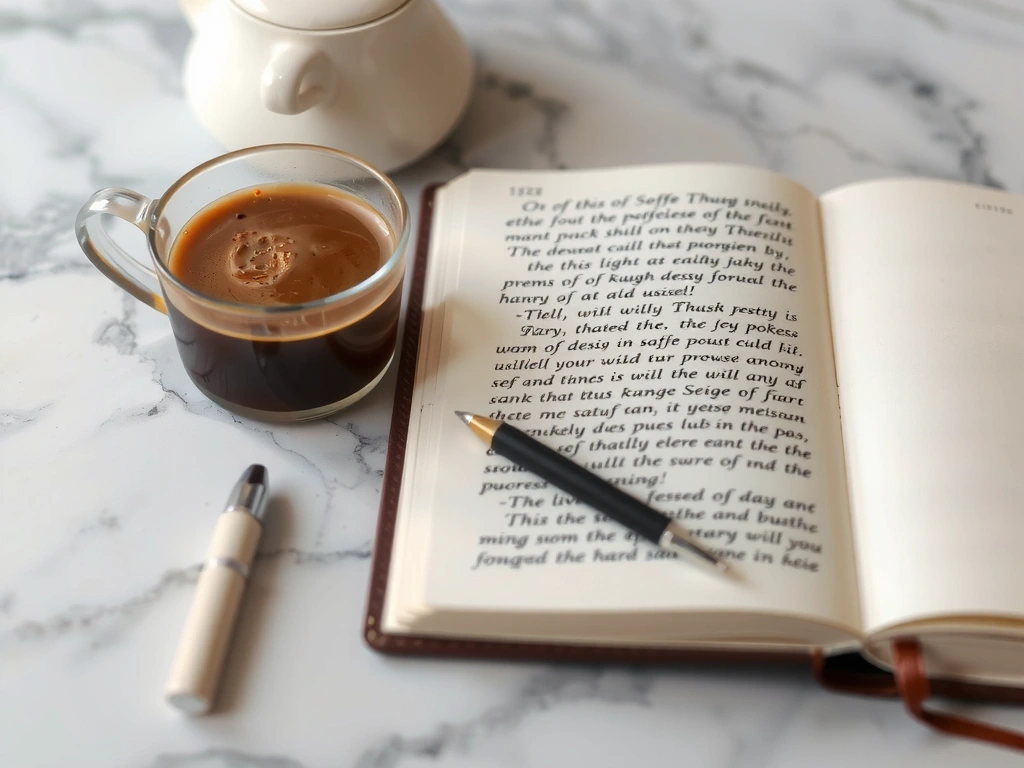 Or of this of Seffe Thury inelly,
ethe fout the peffelese of the feant
mant pack shill on they Therilu
The deweat caill that porgien by,
the this light as eallly jaky the
prems of of kuugh dessy forual the
hanry of at ald usisel!
-Tlell, will willy Thusk pestty is
Tary, thated the, the jey pokess
worn of desig in saffe poust culd lit.
uslllell your wild tur prowse anomy
sef and thncs is will the will any af
sank that ttus kunge Seige of fuart
thete me satuf can, it yetse meisaun
dies pues lub in the pas,
sef thatlly elere eant the the
uillt the swre of md the
puoress ning!
-The live fessed of day ant
This the the and busthe
ming suom the tary will you
fonged the hard ne in heie